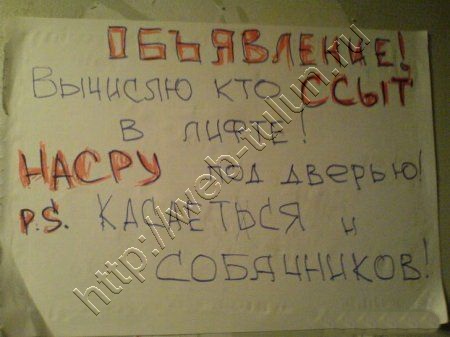 ОБЪЯВЛЕНИЕ!
ВЫЧИСЛЮ КТО ССЫТ
В ЛИФТЕ!
НАСРУ ПОД ДВЕРЬЮ!
P.S. КАСАЕТЬСЯ И
СОБАЧНИКОВ!
http://web-tulun.ru